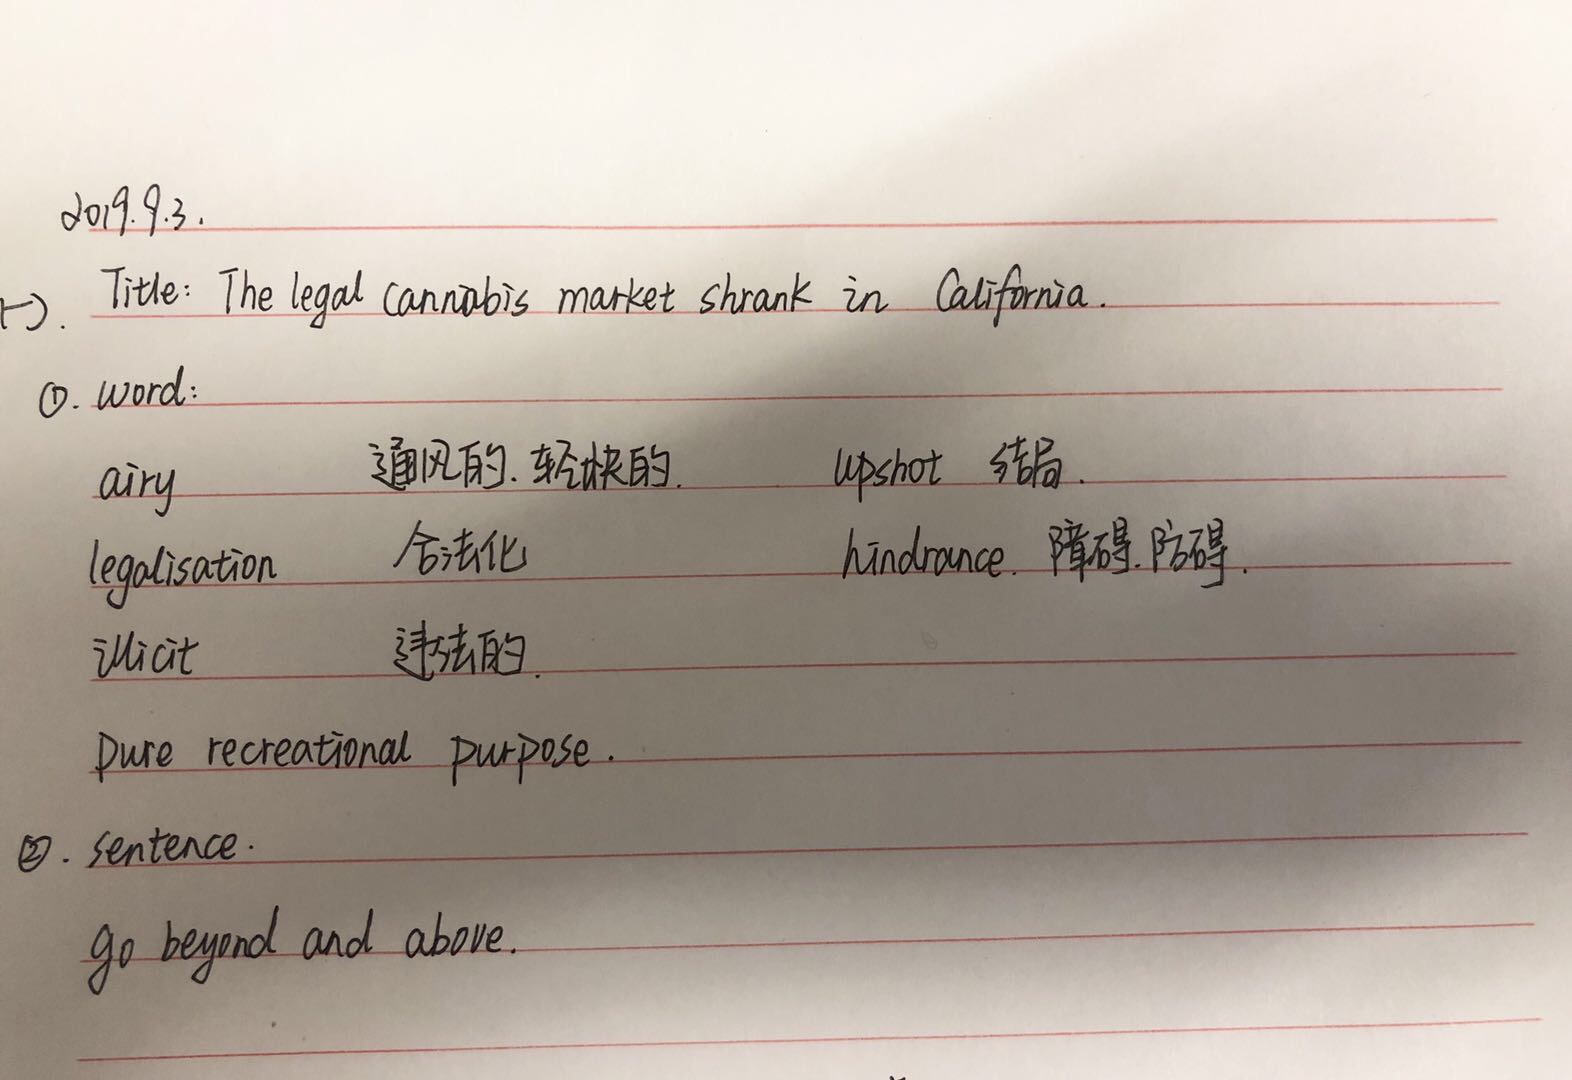 2019.9.3.
(一). Title: The legal cannabis market shrank in California.
①. word:
airy 通风的. 轻快的. upshot 结局.
legalisation 合法化 hindrance. 障碍. 防碍.
illicit 违法的.
pure recreational purpose.
②. sentence.
go beyond and above.